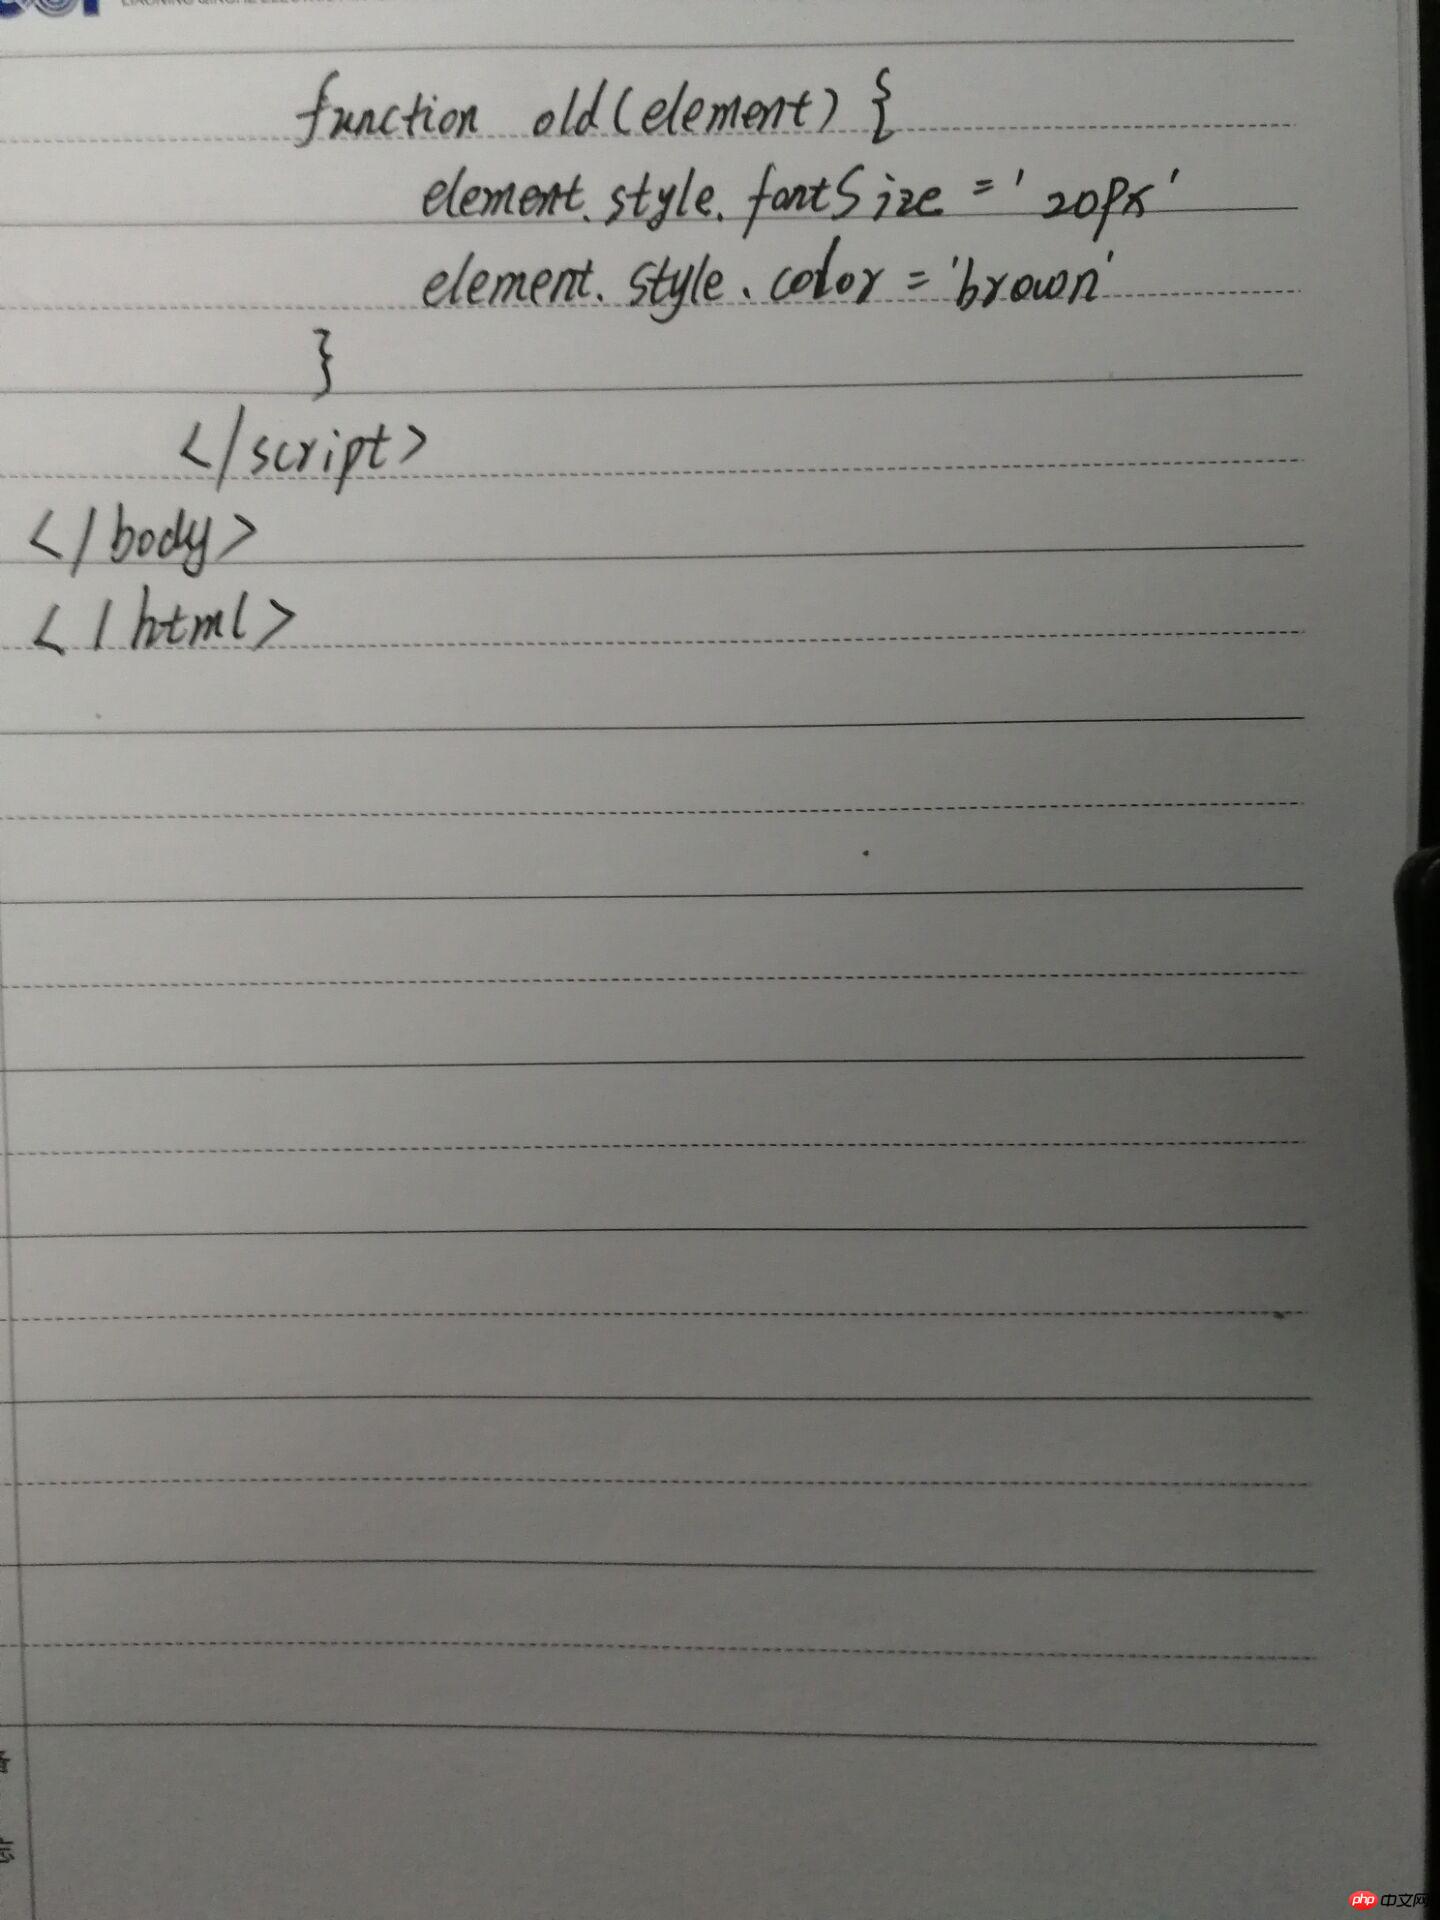 function old(element) {
element.style.fontSize = '20px'
element.style.color = 'brown'
}
</script>
</body>
</html>
php 中文网